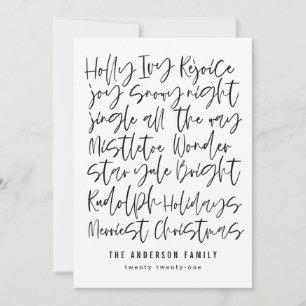 Holly Ivy Rejoice
joy Snowy night
jingle all the way
Mistletoe Wonder
Star Yule Bright
Rudolph Holidays
Merriest Christmas
THE ANDERSON FAMILY
twenty twenty-one